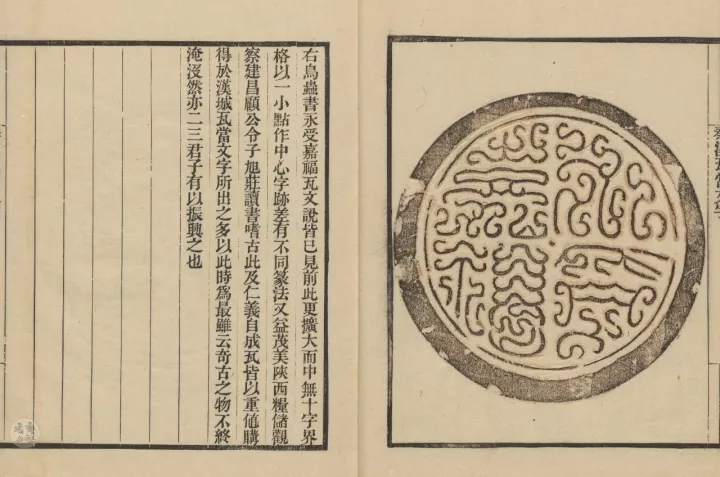 永受
嘉福
右鳥蟲書永受嘉福瓦文說皆已見前此更擴大而中無十字界
格以一小點作中心字跡差有不同篆法又益茂美陝西糧儲觀
察建昌顧公令子旭莊讀書嗜古此及仁義自成瓦皆以重値購
得於漢城瓦當文字所出之多以此時爲最雖云奇古之物不終
淹沒然亦二三君子有以振興之也